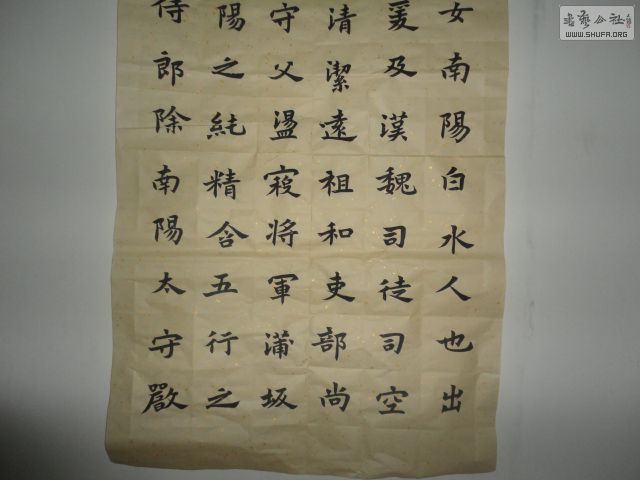 女南陽白水人也出
爰及漢魏司徒司空
清潔遠祖和吏部尚
守父盪寇將軍蒲坂
陽之純精含五行之
侍郎除南陽太守嚴
書藝公社
WWW.SHUFA.ORG